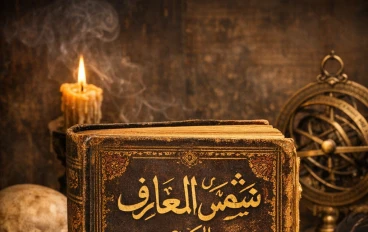 شمس المعارف